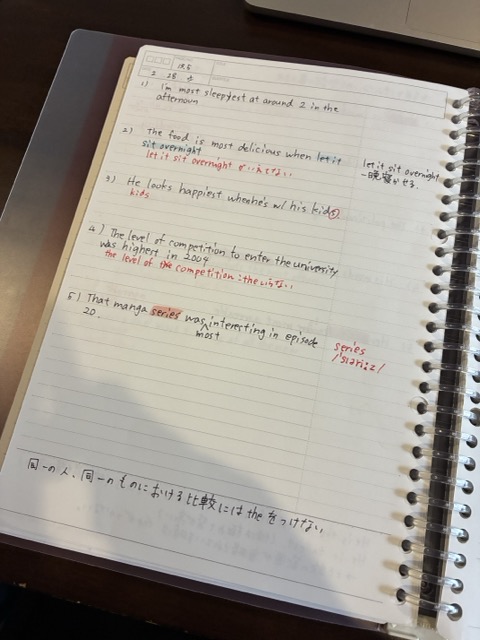 2 28 水
1) I'm most sleepyest at around 2 in the
afternoon
2) The food is most delicious when let it
sit overnight
let it sit overnight
let it sit overnight
一晩寝かせる.
3) He looks happiest when he's w/ his kids.
kids
4) The level of competition to enter the university
was highest in 2009
the level of the competition : theいらない
5) That manga series was interesting in episode
most
20.
series
/síəriːz/
同一の人、同一のものにおける比較にはtheをつけない